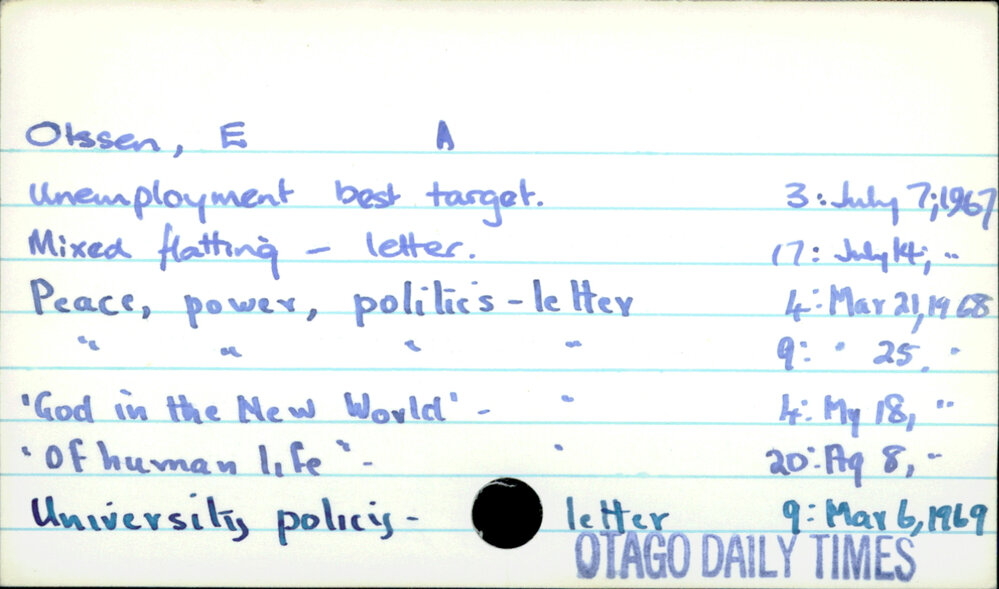 Olssen, E A
Unemployment best target. 3: July 7, 1967
Mixed flatting - letter. 17: July 14, "
Peace, power, politics - letter 4: Mar 21, 1968
" " " " 9: " 25, "
'God in the New World' - " 4: My 18, "
"Of human life" - " 20: Ag 8, "
University policy - letter 9: Mar 6, 1969
OTAGO DAILY TIMES